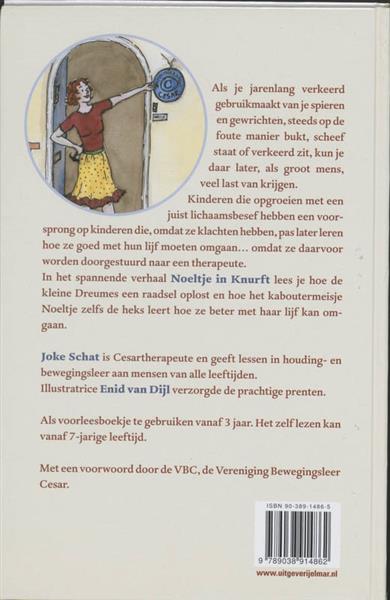 Als je jarenlang verkeerd
gebruikmaakt van je spieren
en gewrichten, steeds op de
foute manier bukt, scheef
staat of verkeerd zit, kun je
daar later, als groot mens,
veel last van krijgen.
Kinderen die opgroeien met een
juist lichaamsbesef hebben een voor-
sprong op kinderen die, omdat ze klachten hebben, pas later leren
hoe ze goed met hun lijf moeten omgaan... omdat ze daarvoor
worden doorgestuurd naar een therapeute.
In het spannende verhaal Noeltje in Knurft lees je hoe de
kleine Dreumes een raadsel oplost en hoe het kaboutermeisje
Noeltje zelfs de heks leert hoe ze beter met haar lijf kan om-
gaan.
Joke Schat is Cesartherapeute en geeft lessen in houding- en
bewegingsleer aan mensen van alle leeftijden.
Illustratrice Enid van Dijl verzorgde de prachtige prenten.
Als voorleesboekje te gebruiken vanaf 3 jaar. Het zelf lezen kan
vanaf 7-jarige leeftijd.
Met een voorwoord door de VBC, de Vereniging Bewegingsleer
Cesar.
ISBN 90-389-1486-5
9 789038 914862
www.uitgeverijelmar.nl